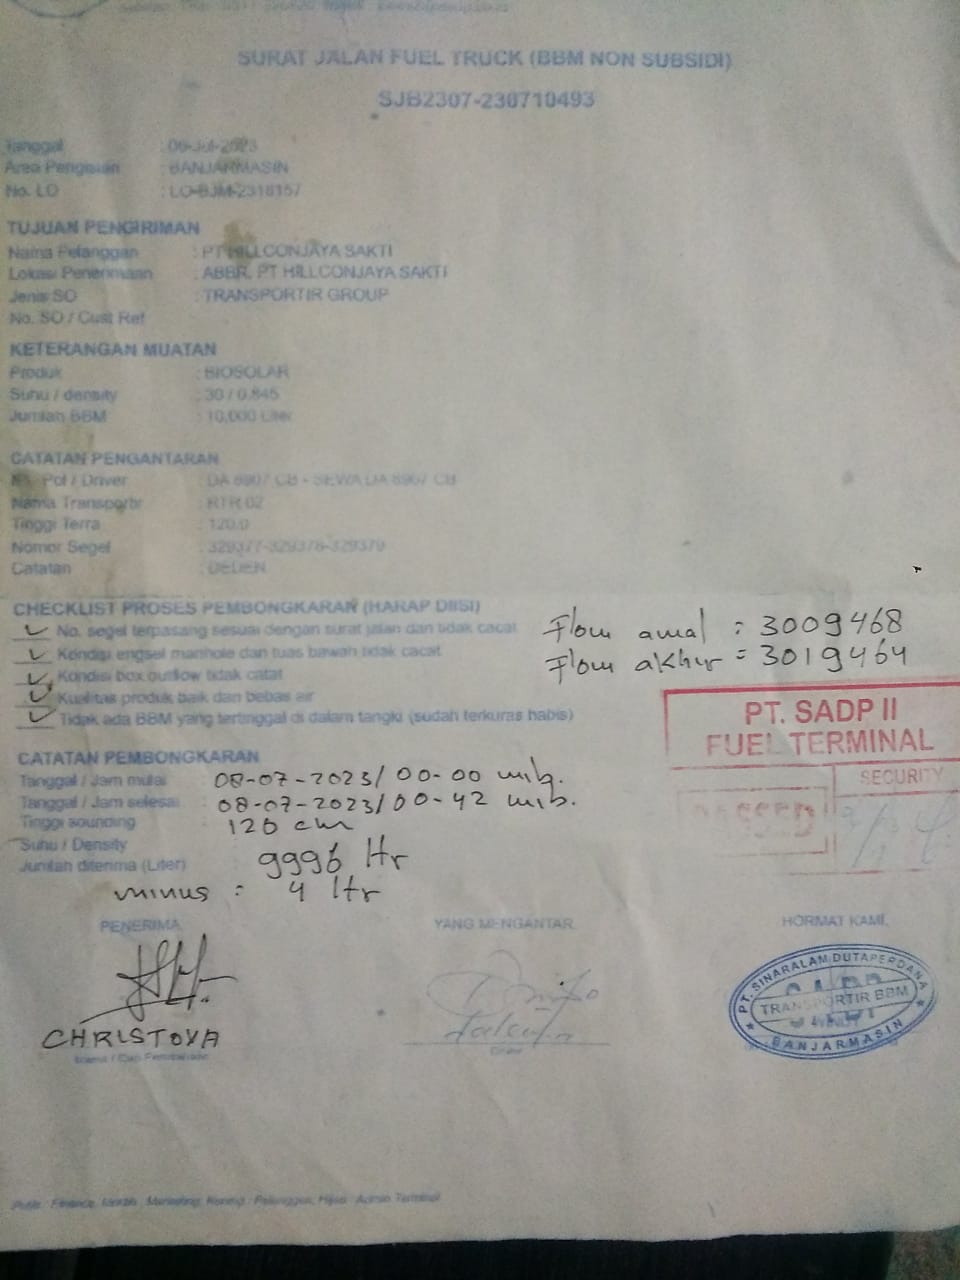 SURAT JALAN FUEL TRUCK (BBM NON SUBSIDI)
SJB2307-230710493
Tanggal : 06-Jul-2023
Area Pengisian : BANJARMASIN
No. LO : LO-BJM-2318157
TUJUAN PENGIRIMAN
Nama Pelanggan : PT HILLCONJAYA SAKTI
Lokasi Penerimaan : ABBR. PT HILLCONJAYA SAKTI
Jenis SO : TRANSPORTIR GROUP
No. SO / Cust Ref
KETERANGAN MUATAN
Produk : BIOSOLAR
Suhu / density : 30 / 0.845
Jumlah BBM : 10,000 Liter
CATATAN PENGANTARAN
No. Pol / Driver : DA 8907 CB - SEWA DA 8907 CB
Nama Transportir : RTR 02
Tinggi Terra : 120.0
Nomor Segel : 329377-329378-329379
Catatan : DEDEN
CHECKLIST PROSES PEMBONGKARAN (HARAP DIISI)
✓ No. segel terpasang sesuai dengan surat jalan dan tidak cacat
✓ Kondisi engsel manhole dan tuas bawah tidak cacat
✓ Kondisi box outflow tidak catat
✓ Kualitas produk baik dan bebas air
✓ Tidak ada BBM yang tertinggal di dalam tangki (sudah terkuras habis)
Flow awal : 3009468
Flow akhir = 3019464
PT. SADP II
FUEL TERMINAL
SECURITY
PASSED
CATATAN PEMBONGKARAN
Tanggal / Jam mulai : 08-07-2023/ 00-00 wib.
Tanggal / Jam selesai : 08-07-2023/ 00-42 wib.
Tinggi sounding : 120 cm
Suhu / Density
Jumlah diterima (Liter) : 9996 ltr
minus : 4 ltr
PENERIMA YANG MENGANTAR HORMAT KAMI,
CHRISTOVA
PT. SINARALAM DUTAPERDANA
TRANSPORTIR BBM
BANJARMASIN
Driver